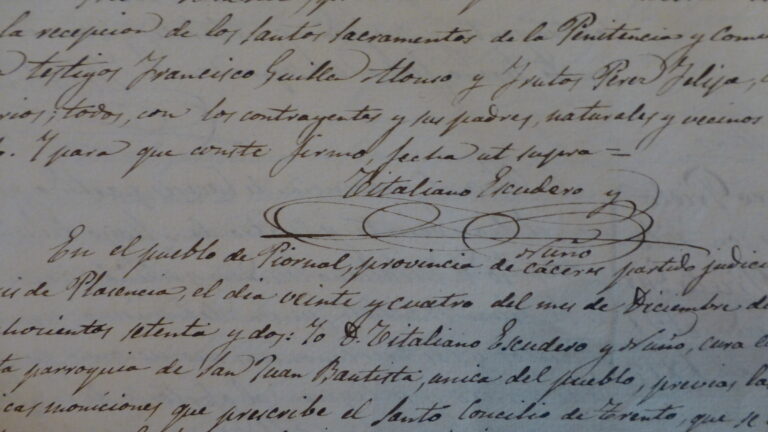 la recepcion de los santos sacramentos de la Penitencia y Comu
testigos Francisco Guilla Alonso y Frutos Perez Felipe,
rios; todos, con los contrayentes y sus padres, naturales y vecinos
Y para que conste firmo, fecha ut supra =
Vitaliano Escudero y
Nuño
En el pueblo de Piornal, provincia de Cáceres partido judici
is de Plasencia, el dia veinte y cuatro del mes de Diciembre de
hocientos setenta y dos: Yo D. Vitaliano Escudero y Nuño, cura
ta parroquia de San Juan Bautista, unica del pueblo, previas la
icas moniciones que prescribe el Santo Concilio de Trento, que se